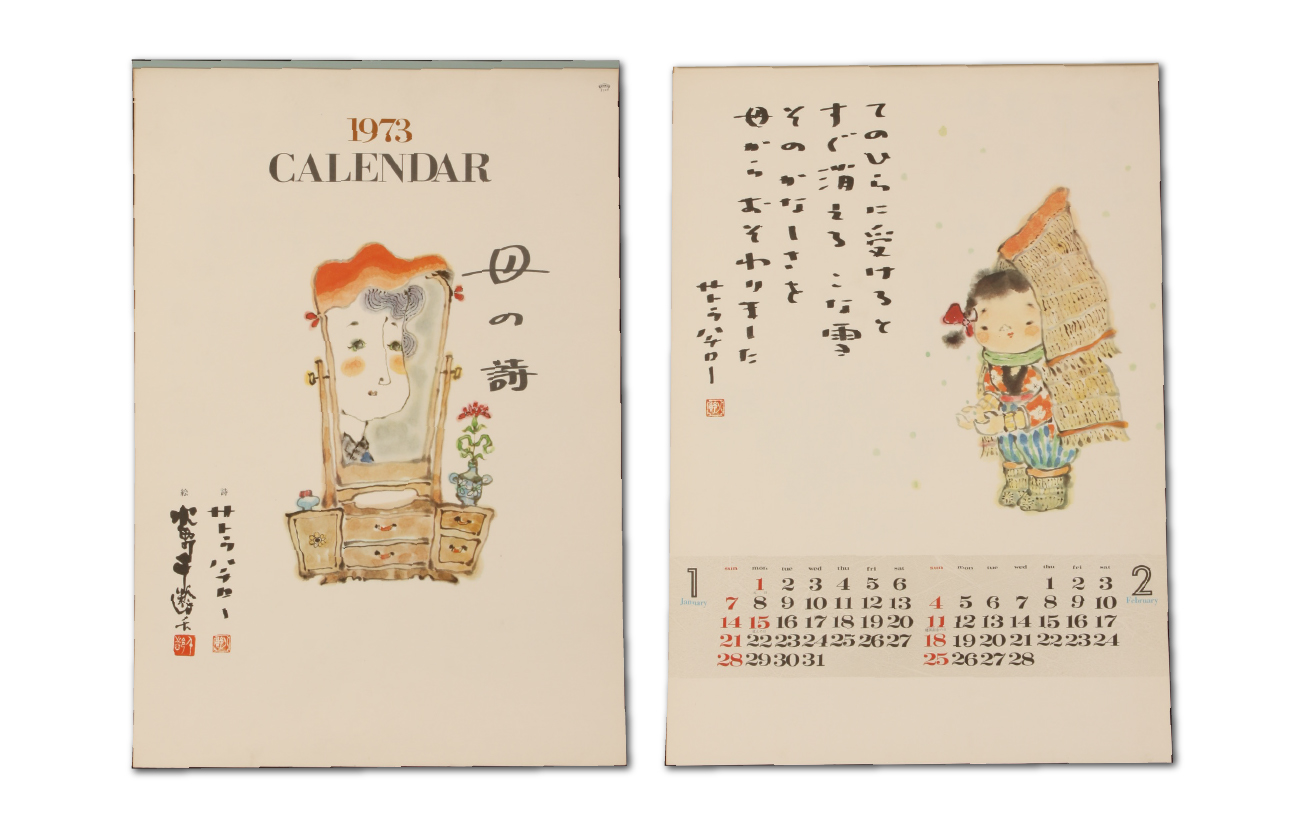 1973
CALENDAR
母の詩
詩
サトウハチロー
絵
てのひらに受けると
すぐ消える こな雪
そのかなしさを
母から おそわりました
サトウハチロー
1
January
sun mon tue wed thu fri sat
1 2 3 4 5 6
7 8 9 10 11 12 13
14 15 16 17 18 19 20
21 22 23 24 25 26 27
28 29 30 31
2
February
sun mon tue wed thu fri sat
1 2 3
4 5 6 7 8 9 10
11 12 13 14 15 16 17
18 19 20 21 22 23 24
25 26 27 28